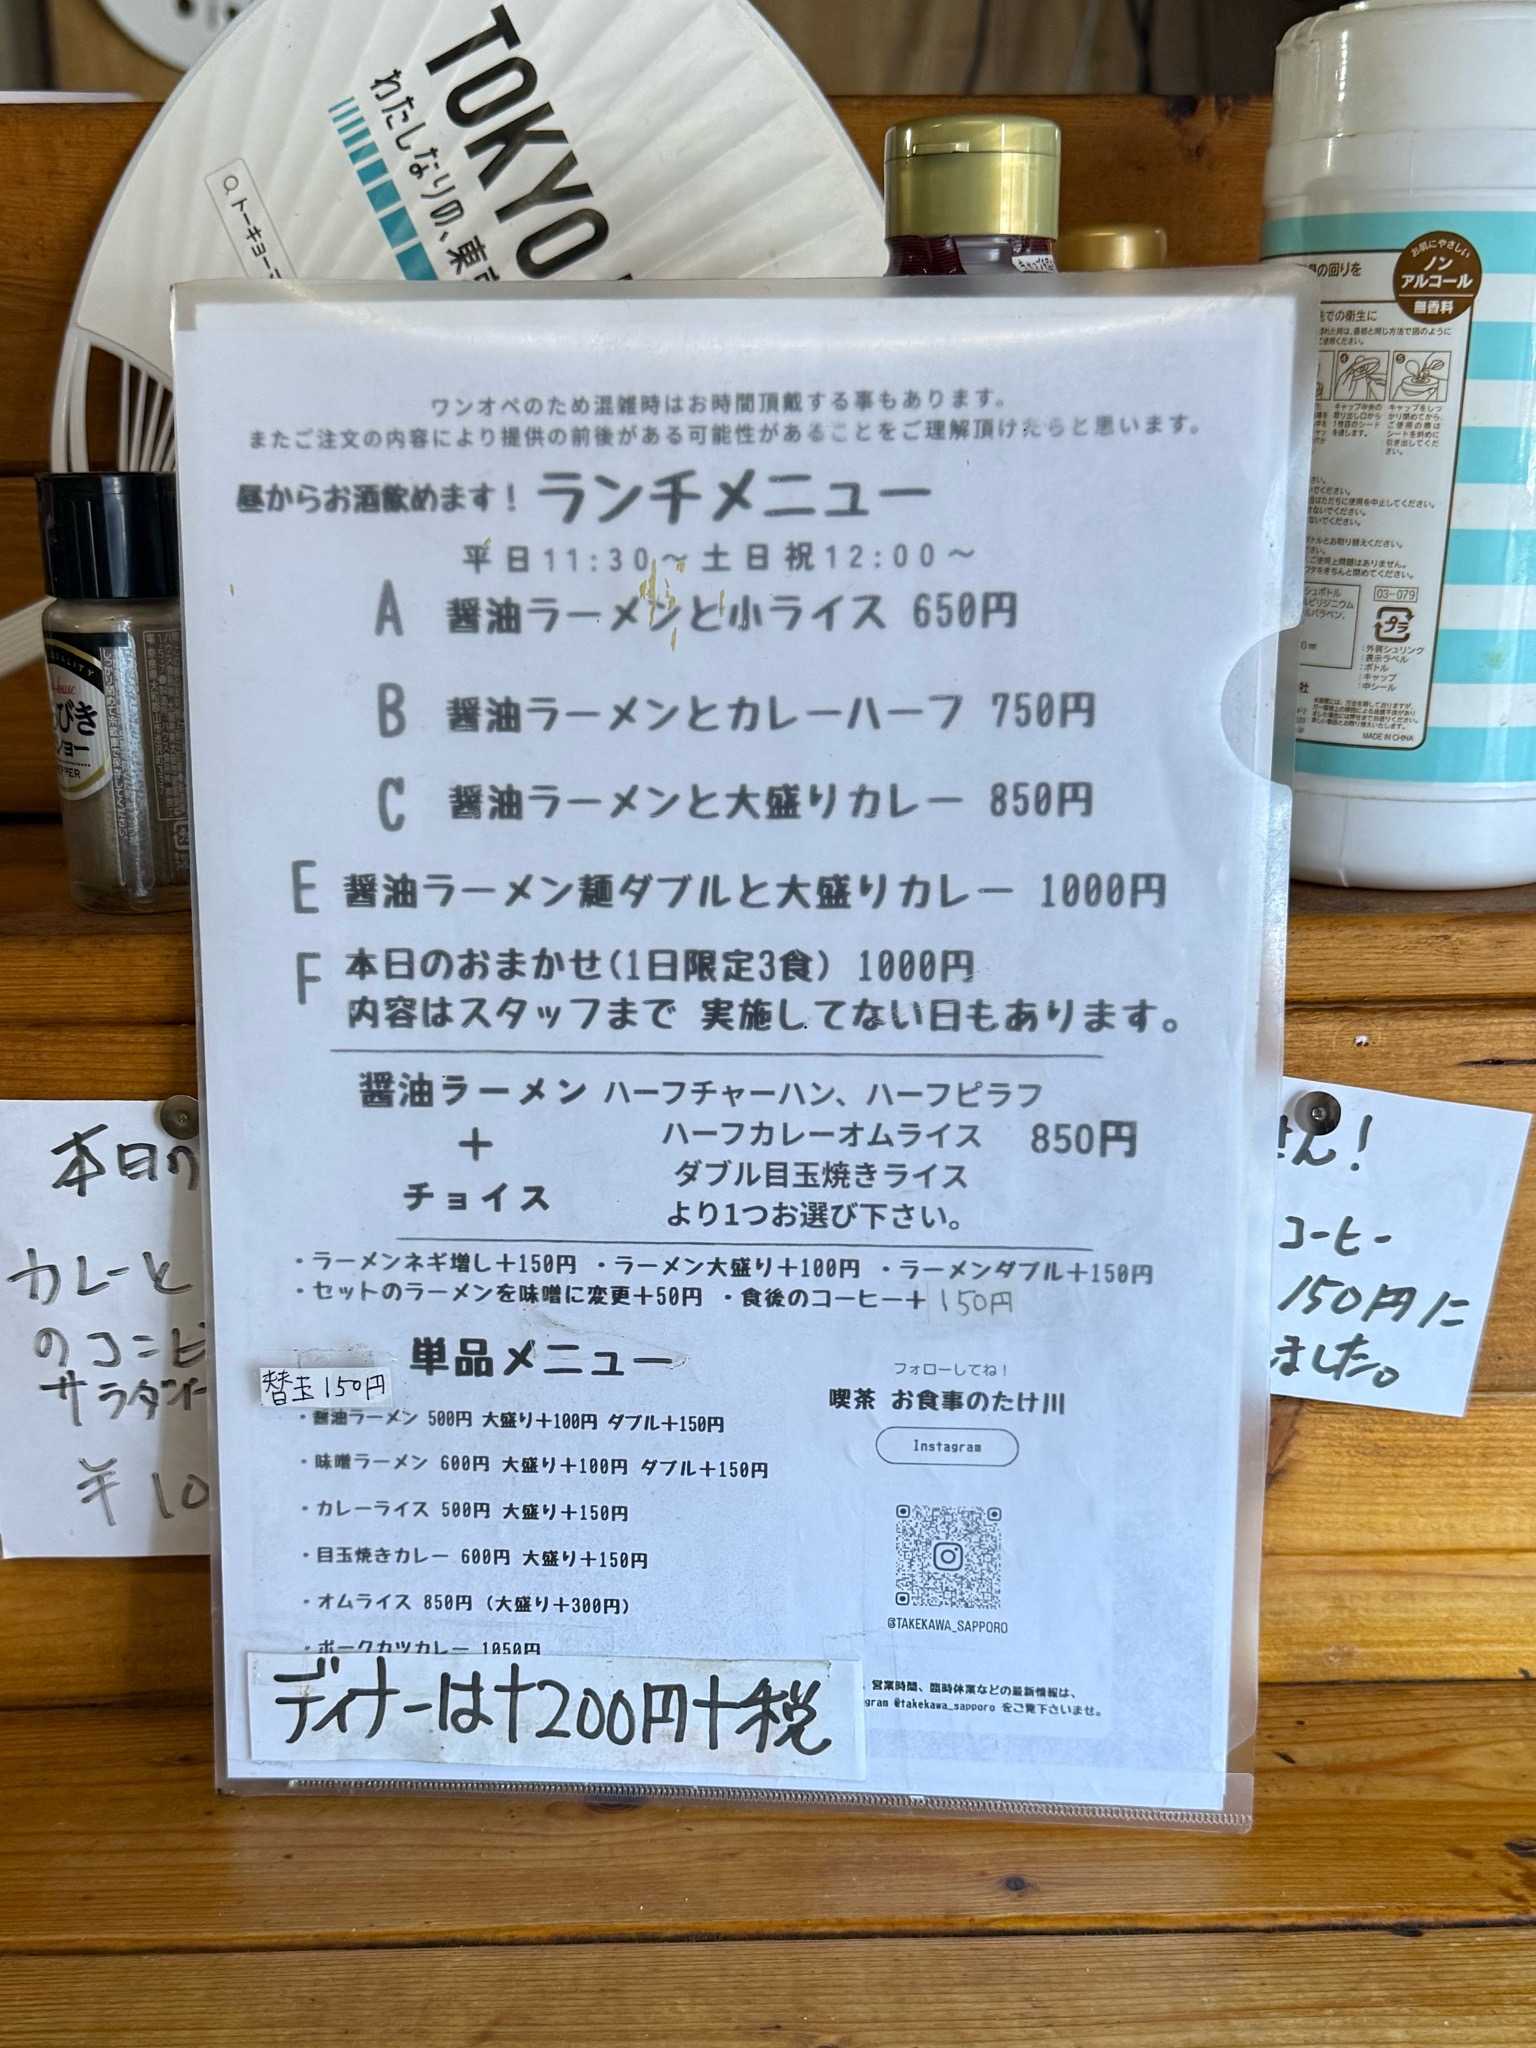 TOKYO
わたしなりの、東
トーキョー
ワンオペのため混雑時はお時間頂戴する事もあります。
またご注文の内容により提供の前後がある可能性があることをご理解頂けたらと思います。
昼からお酒飲めます! ランチメニュー
平日11:30～土日祝12:00～
A 醤油ラーメンと小ライス 650円
B 醤油ラーメンとカレーハーフ 750円
C 醤油ラーメンと大盛りカレー 850円
E 醤油ラーメン麺ダブルと大盛りカレー 1000円
F 本日のおまかせ(1日限定3食) 1000円
内容はスタッフまで 実施してない日もあります。
醤油ラーメン ハーフチャーハン、ハーフピラフ
+ ハーフカレーオムライス 850円
ダブル目玉焼きライス
チョイス
より1つお選び下さい。
・ラーメンネギ増し+150円 ・ラーメン大盛り+100円 ・ラーメンダブル+150円
・セットのラーメンを味噌に変更+50円 ・食後のコーヒー+150円
単品メニュー
替玉150円
・醤油ラーメン 500円 大盛り+100円 ダブル+150円
・味噌ラーメン 600円 大盛り+100円 ダブル+150円
・カレーライス 500円 大盛り+150円
・目玉焼きカレー 600円 大盛り+150円
・オムライス 850円 (大盛り+300円)
・ポークカツカレー 1050円
ディナーは+200円+税
フォローしてね!
喫茶 お食事のたけ川
Instagram
@TAKEKAWA_SAPPORO
営業時間、臨時休業などの最新情報は、
gram @takekawa_sapporo をご覧下さいませ。
本日の
カレーと
のコンビ
サラダ付
¥10
せん!
コーヒー
150円に
ました。
お肌にやさしい
ノン
アルコール
無香料
の回りを
での衛生に
03-079
プラ
:外装シュリンク
:表示ラベル
:ボトル
:キャップ
:中シール
MADE IN CHINA
びき
ショー